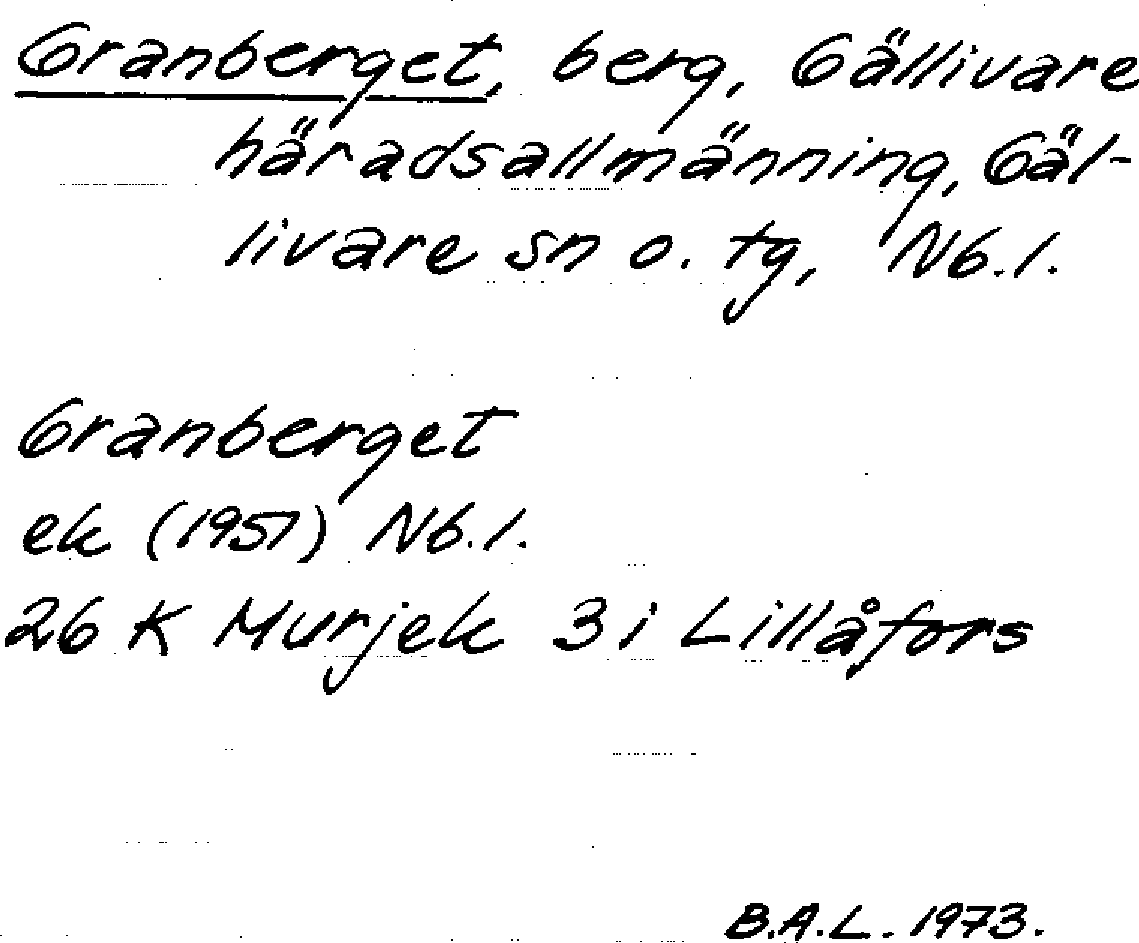 Granberget, berg, Gällivare
häradsallmänning, Gäl-
livare sn o. tg, Nb.l.
Granberget
ek (1957) Nb.l.
26 K Murjek 3 i Lillåfors
B.A.L. 1973.